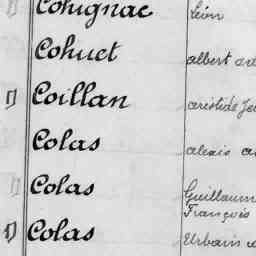 Cohignac Léon
Cohuet albert
Coillan aristide
Colas alexis
Colas Guillaum
François
Colas Urbain